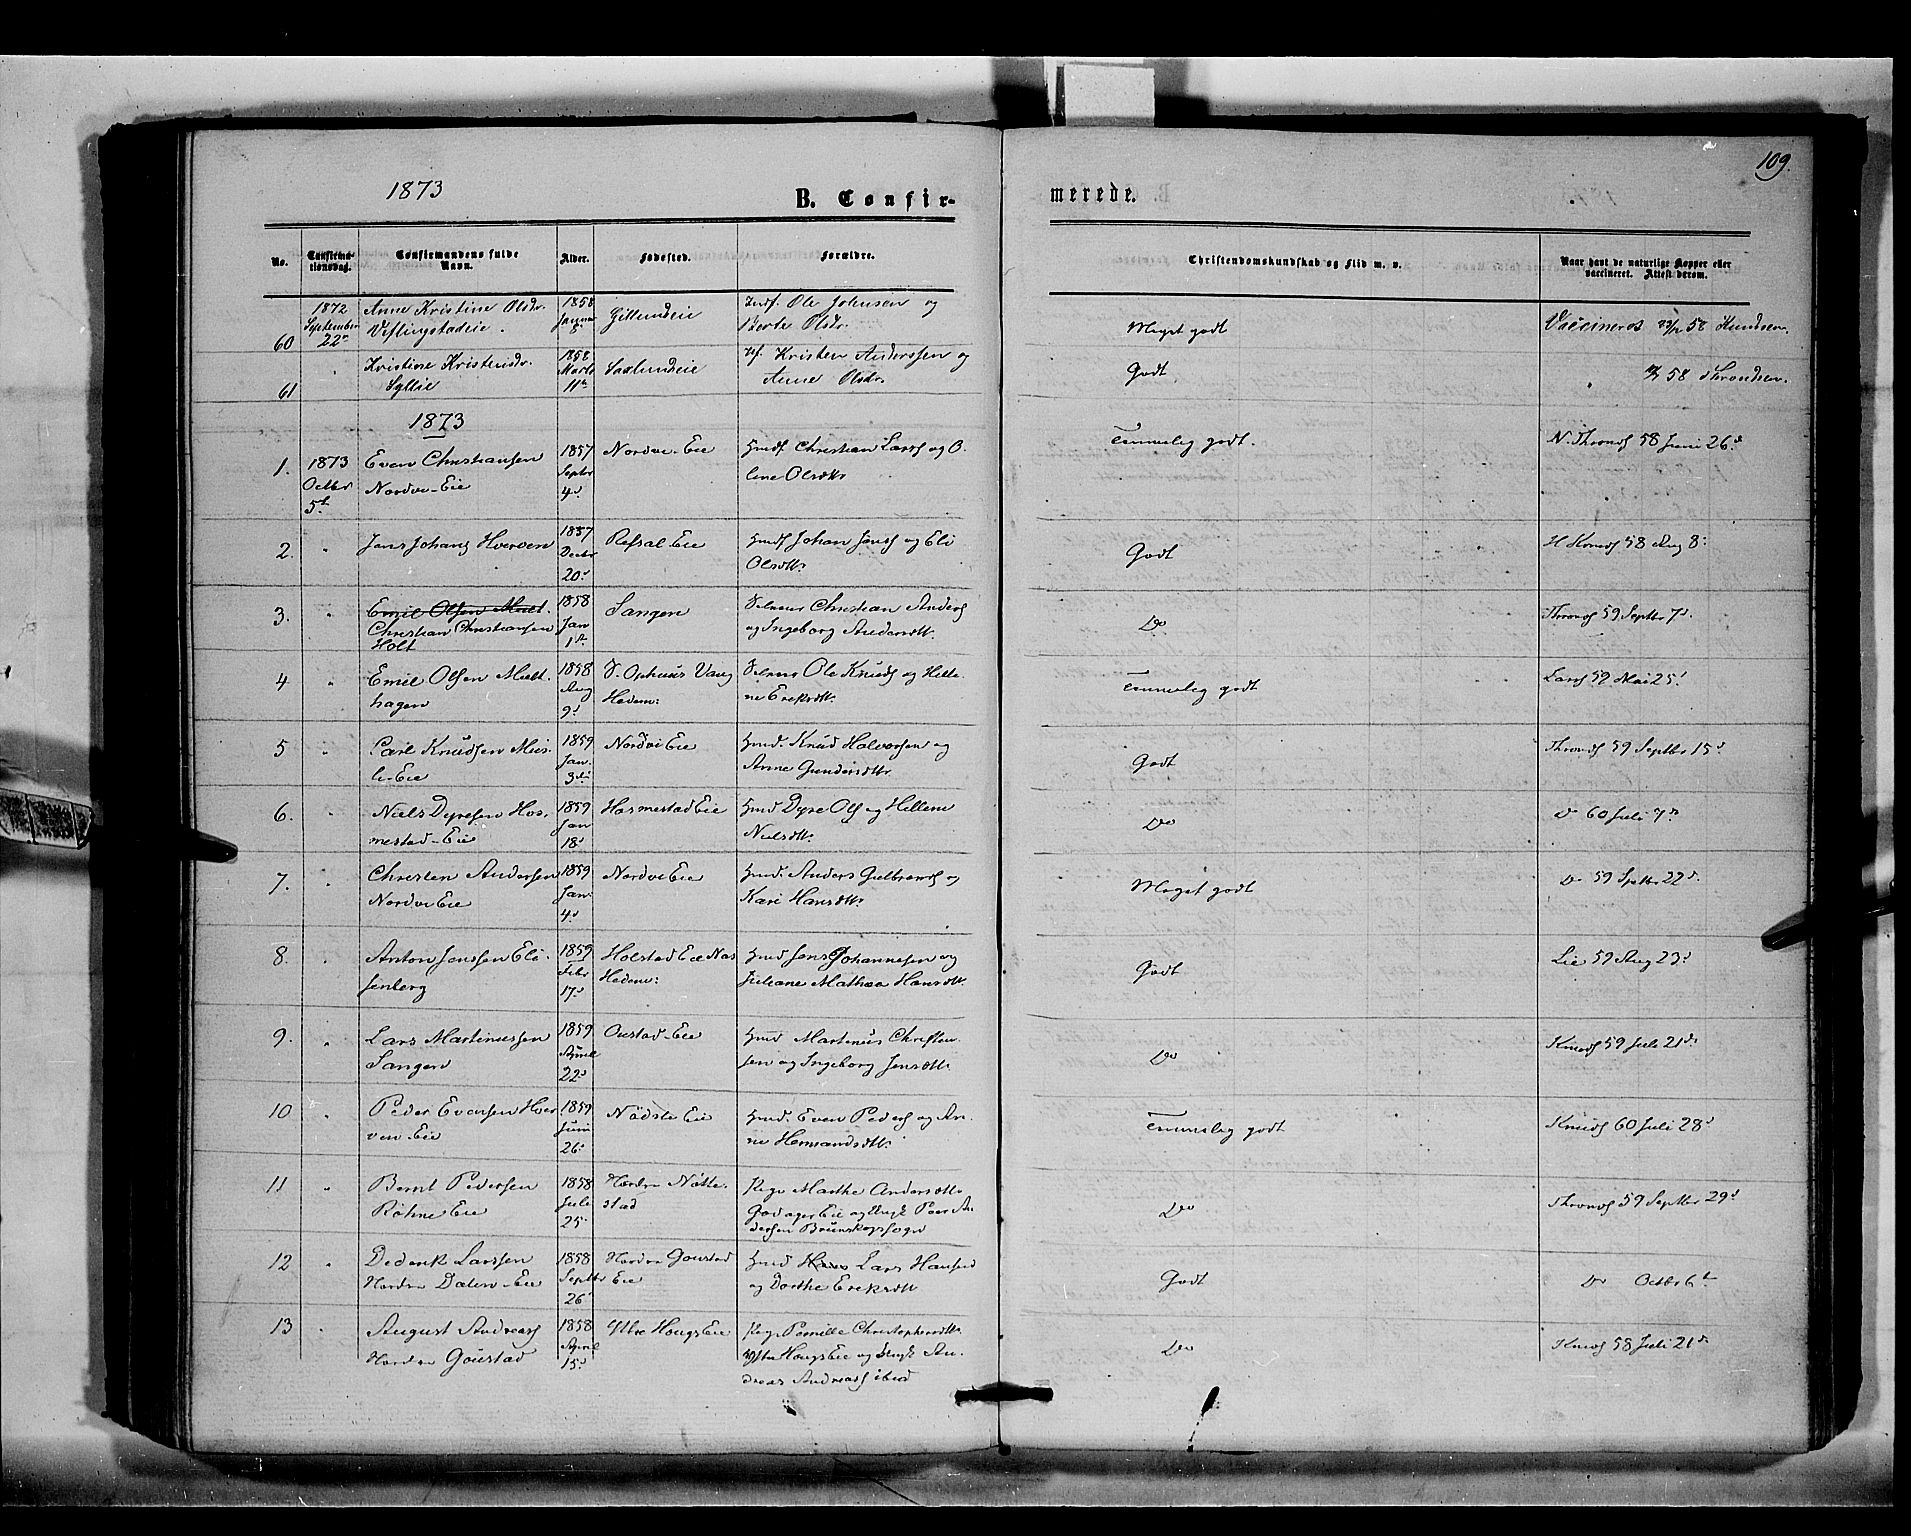 109.
1873
B. Confirmerede.
No.
Confirmationsdag.
Confirmandens fulde Navn.
Alder.
Fødested.
Forældre.
Christendomskundskab og Flid m. v.
Naar havt de naturlige Kopper eller vaccineret. Attest derom.
60
1872
September
22
Anne Kristine Olsdr.
1858
Januar
Ole Johnsen og
Berte Olsdr.
Meget godt
Vaccineret 58 Knudsen.
61
Kristine Kristensdr.
1858
Marts
11
Kristen Anderssen og
Anne Olsdr.
Godt
58 Throndsen.
1873
1.
1873
Octbr
5t
Even Christiansen
Nordvi-Eie
1857
Septbr
4d
Nordvi-Eie
Husf Christian Larss og O-
line Olsdtr
Temmelig godt.
N. Thronds 58 Juni 26d
2.
Jens Johans Hverven
1857
Decbr
20d
Refsal-Eie
Husf Johan Jenss og Eli
Olsdtr.
Godt
H Knuds 58 Aug 8d
3.
Emil Olsen Mælt.
Christian Christiansen
Holt
1858
Jan
1st
Sangen
Selveier Christian Anders
og Ingeborg Andersdtr.
Do
Thronds 59 Septbr 7d
4
Emil Olsen Mælt-
hagen
1858
Aug
9d
S. Ophuus Vang
Hedem:
Selveier Ole Knuds og Helle-
ne Eriksdtr.
Temmelig godt
Larss 59 Mai 25d
5
Carl Knudsen Mus-
li-Eie
1859
Jan.
3die
Nordvi Eie
Husd. Knud Halvorsen og
Anne Gundersdtr.
Godt
Thronds 59 Septbr 15d
6.
Niels Dyresen Hos-
mestad-Eie
1859
Jan
18d
Hosmestad Eie
Husd Dyre Ols og Hellene
Nielsdtr.
Do
Do 60 Juli 7d
7.
Christen Andersen
Nordvi Eie
1859
Jan.
4d
Nordvi Eie
Husd. Anders Gulbrands og
Kari Hansdtr.
Meget godt
Do 59 Sptbr 22d
8.
Anton Jenssen Eli-
senberg
1859
Febr
17d
Holstad Eie Nas
Hedem:
Husd Jens Johannesen og
Juliane Mathea Hansdtr.
Godt
Lie 59 Aug 23d
9.
Lars Martinussen
Sangen
1859
April
22d
Oustad-Eie
Husd Martinus Christen-
sen og Ingeborg Jensdtr.
Do
Knuds 59 Juli 21d
10
Peder Evensen Hver-
ven-Eie
1859
Juni
26d
Nødsle Eie
Husd. Even Peders og An-
ne Hemmandsdtr.
Temmelig godt
Knuds 60 Juli 28d
11
Bernt Pedersen
Röhne Eie
1858
Juli
25
Nordre Nøtte-
stad
Pige Marthe Andersdtr.
Godager Eie og Ungk Peer An-
dersen Brunskogsogn
Do
Thronds 59 Septbr 29d
12
Dederik Larssen
Nordre Dælin-Eie
1858
Septbr
26
Nordre Goustad
Eie
Husd Hans Lars Hansen
og Dorthe Eriksdtr
Godt
Do Octbr 6te
13
August Andreass
Nordre Goustad
1858
April
15d
Ytre Hougs Eie
Pige Pernille Christophersdtr.
Ytre Hougs Eie og Ungk An-
dreas Andreass ibid
Do
Knuds 58 Juli 21d